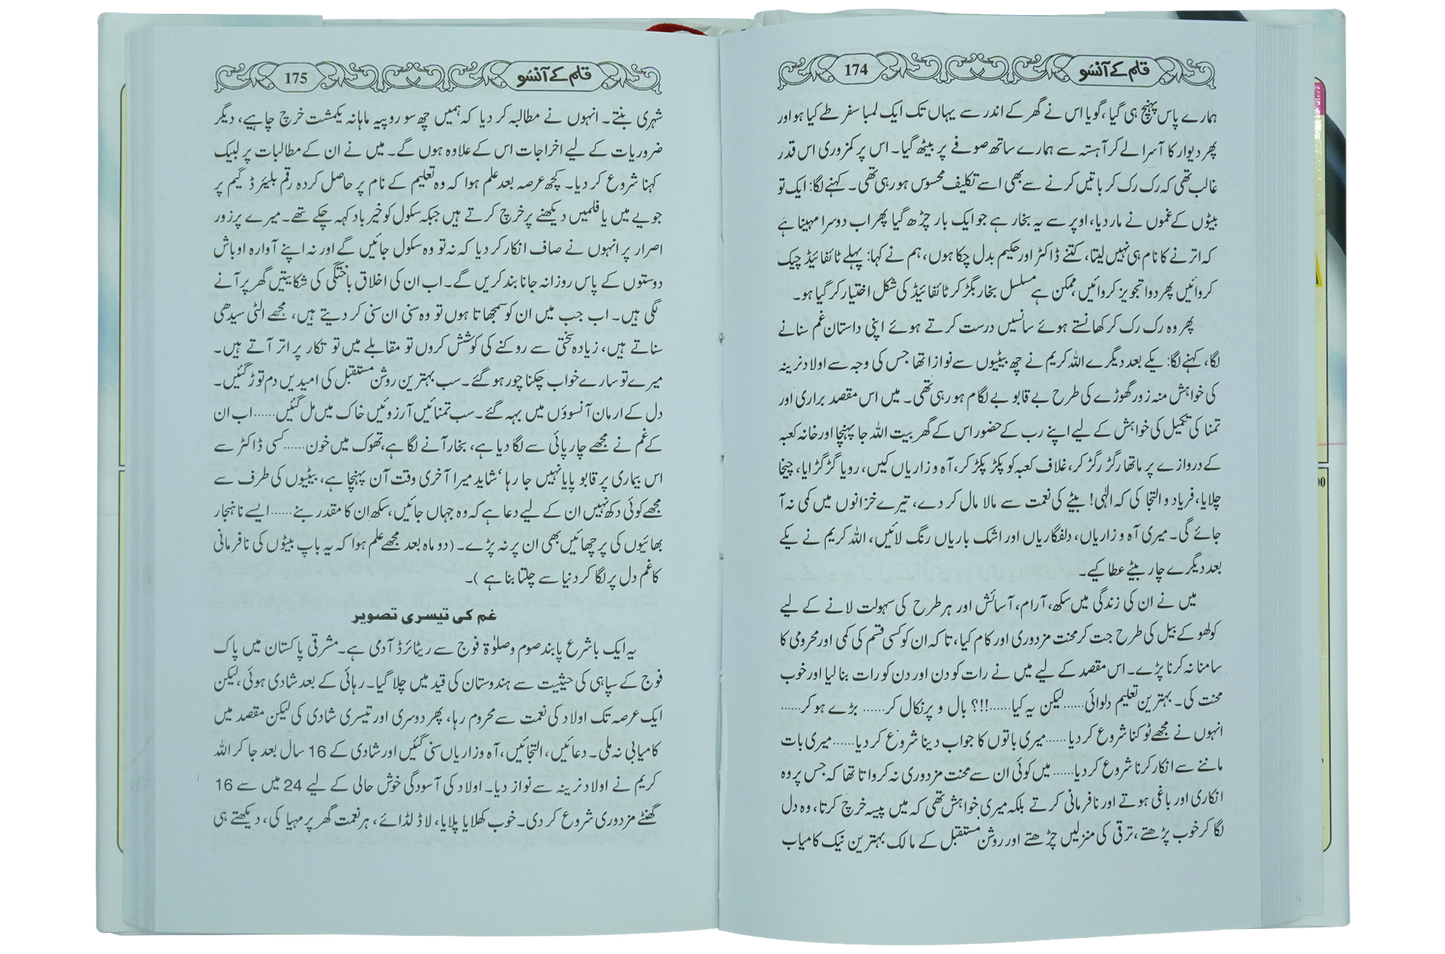 قلم کے آنسو 174
ہمارے پاس پہنچ ہی گیا، گویا اس نے گھر کے اندر سے یہاں تک ایک لمبا سفر طے کیا ہو اور
پھر دیوار کا آسرا لے کر آہستہ سے ہمارے ساتھ صوفے پر بیٹھ گیا۔ اس پر کمزوری اس قدر
غالب تھی کہ رک رک کر باتیں کرنے سے بھی اسے تکلیف محسوس ہو رہی تھی۔ کہنے لگا: ایک تو
بیٹوں کے غموں نے مار دیا، اوپر سے یہ بخار ہے جو ایک بار چڑھ گیا پھر اب دوسرا مہینا ہے
کہ اترنے کا نام ہی نہیں لیتا، کتنے ڈاکٹر اور حکیم بدل چکا ہوں، ہم نے کہا: پہلے ٹائفائیڈ چیک
کروائیں پھر دوا تجویز کروائیں ممکن ہے مسلسل بخار بگڑ کر ٹائفائیڈ کی شکل اختیار کر گیا ہو۔
پھر وہ رک رک کر کھانستے ہوئے سانسیں درست کرتے ہوئے اپنی داستان غم سنانے
لگا، کہنے لگا: یکے بعد دیگرے اللہ کریم نے چھ بیٹیوں سے نوازا تھا جس کی وجہ سے اولاد نرینہ
کی خواہش منہ زور گھوڑے کی طرح بے قابو بے لگام ہو رہی تھی۔ میں اس مقصد براری اور
تمنا کی تکمیل کی خواہش کے لیے اپنے رب کے حضور اس کے گھر بیت اللہ جا پہنچا اور خانہ کعبہ
کے دروازے پر ماتھا رگڑ رگڑ کر، غلاف کعبہ کو پکڑ پکڑ کر، آہ و زاریاں کیں، رویا گڑگڑایا، چیخا
چلایا، فریاد و التجا کی کہ الٰہی! بیٹے کی نعمت سے مالا مال کر دے، تیرے خزانوں میں کمی نہ آ
جائے گی۔ میری آہ و زاریاں، دلفگاریاں اور اشک باریاں رنگ لائیں، اللہ کریم نے یکے
بعد دیگرے چار بیٹے عطا کیے۔
میں نے ان کی زندگی میں سکھ، آرام، آسائش اور ہر طرح کی سہولت لانے کے لیے
کولھو کے بیل کی طرح جت کر محنت مزدوری اور کام کیا، تاکہ ان کو کسی قسم کی کمی اور محرومی کا
سامنا نہ کرنا پڑے۔ اس مقصد کے لیے میں نے رات کو دن اور دن کو رات بنا لیا اور خوب
محنت کی۔ بہترین تعلیم دلوائی......لیکن یہ کیا......!!؟ بال و پر نکال کر...... بڑے ہو کر......
انہوں نے مجھے ٹوکنا شروع کر دیا......میری باتوں کا جواب دینا شروع کر دیا......میری بات
ماننے سے انکار کرنا شروع کر دیا......میں کوئی ان سے محنت مزدوری نہ کرواتا تھا کہ جس پر وہ
انکاری اور باغی ہوتے اور نافرمانی کرتے بلکہ میری خواہش تھی کہ میں پیسہ خرچ کرتا، وہ دل
لگا کر خوب پڑھتے، ترقی کی منزلیں چڑھتے اور روشن مستقبل کے مالک بہترین نیک کامیاب
قلم کے آنسو 175
شہری بنتے۔ انہوں نے مطالبہ کر دیا کہ ہمیں چھ سو روپیہ ماہانہ یکمشت خرچ چاہیے، دیگر
ضروریات کے لیے اخراجات اس کے علاوہ ہوں گے۔ میں نے ان کے مطالبات پر لبیک
کہنا شروع کر دیا۔ کچھ عرصہ بعد علم ہوا کہ وہ تعلیم کے نام پر حاصل کردہ رقم بلیئرڈ گیم پر
جوئے میں یا فلمیں دیکھنے پر خرچ کرتے ہیں جبکہ سکول کو خیر باد کہہ چکے تھے۔ میرے پر زور
اصرار پر انہوں نے صاف انکار کر دیا کہ نہ تو وہ سکول جائیں گے اور نہ اپنے آوارہ اوباش
دوستوں کے پاس روزانہ جانا بند کریں گے۔ اب ان کی اخلاق باختگی کی شکایتیں گھر پر آنے
لگی ہیں۔ اب جب میں ان کو سمجھاتا ہوں تو وہ سنی ان سنی کر دیتے ہیں، مجھے الٹی سیدھی
سناتے ہیں، زیادہ سختی سے روکنے کی کوشش کروں تو مقابلے میں تو تکار پر اتر آتے ہیں۔
میرے تو سارے خواب چکنا چور ہو گئے۔ سب بہترین روشن مستقبل کی امیدیں دم توڑ گئیں۔
دل کے ارمان آنسوؤں میں بہہ گئے۔ سب تمنائیں آرزوئیں خاک میں مل گئیں......اب ان
کے غم نے مجھے چارپائی سے لگا دیا ہے، بخار آنے لگا ہے، تھوک میں خون......کسی ڈاکٹر سے
اس بیماری پر قابو پایا نہیں جا رہا، شاید میرا آخری وقت آن پہنچا ہے، بیٹیوں کی طرف سے
مجھے کوئی دکھ نہیں ان کے لیے دعا ہے کہ وہ جہاں جائیں، سکھ ان کا مقدر بنے......ایسے ناہنجار
بھائیوں کی پرچھائیں بھی ان پر نہ پڑے۔ (دو ماہ بعد مجھے علم ہوا کہ یہ باپ بیٹوں کی نافرمانی
کا غم دل پر لگا کر دنیا سے چلتا بنا ہے)۔
غم کی تیسری تصویر
یہ ایک باشرع پابند صوم و صلوٰۃ فوج سے ریٹائرڈ آدمی ہے۔ مشرقی پاکستان میں پاک
فوج کے سپاہی کی حیثیت سے ہندوستان کی قید میں چلا گیا۔ رہائی کے بعد شادی ہوئی، لیکن
ایک عرصہ تک اولاد کی نعمت سے محروم رہا، پھر دوسری اور تیسری شادی کی لیکن مقصد میں
کامیابی نہ ملی۔ دعائیں، التجائیں، آہ و زاریاں سنی گئیں اور شادی کے 16 سال بعد جا کر اللہ
کریم نے اولاد نرینہ سے نواز دیا۔ اولاد کی آسودگی خوش حالی کے لیے 24 میں سے 16
گھنٹے مزدوری شروع کر دی۔ خوب کھلایا پلایا، لاڈ لڈائے، ہر نعمت گھر پر مہیا کی، دیکھتے ہی